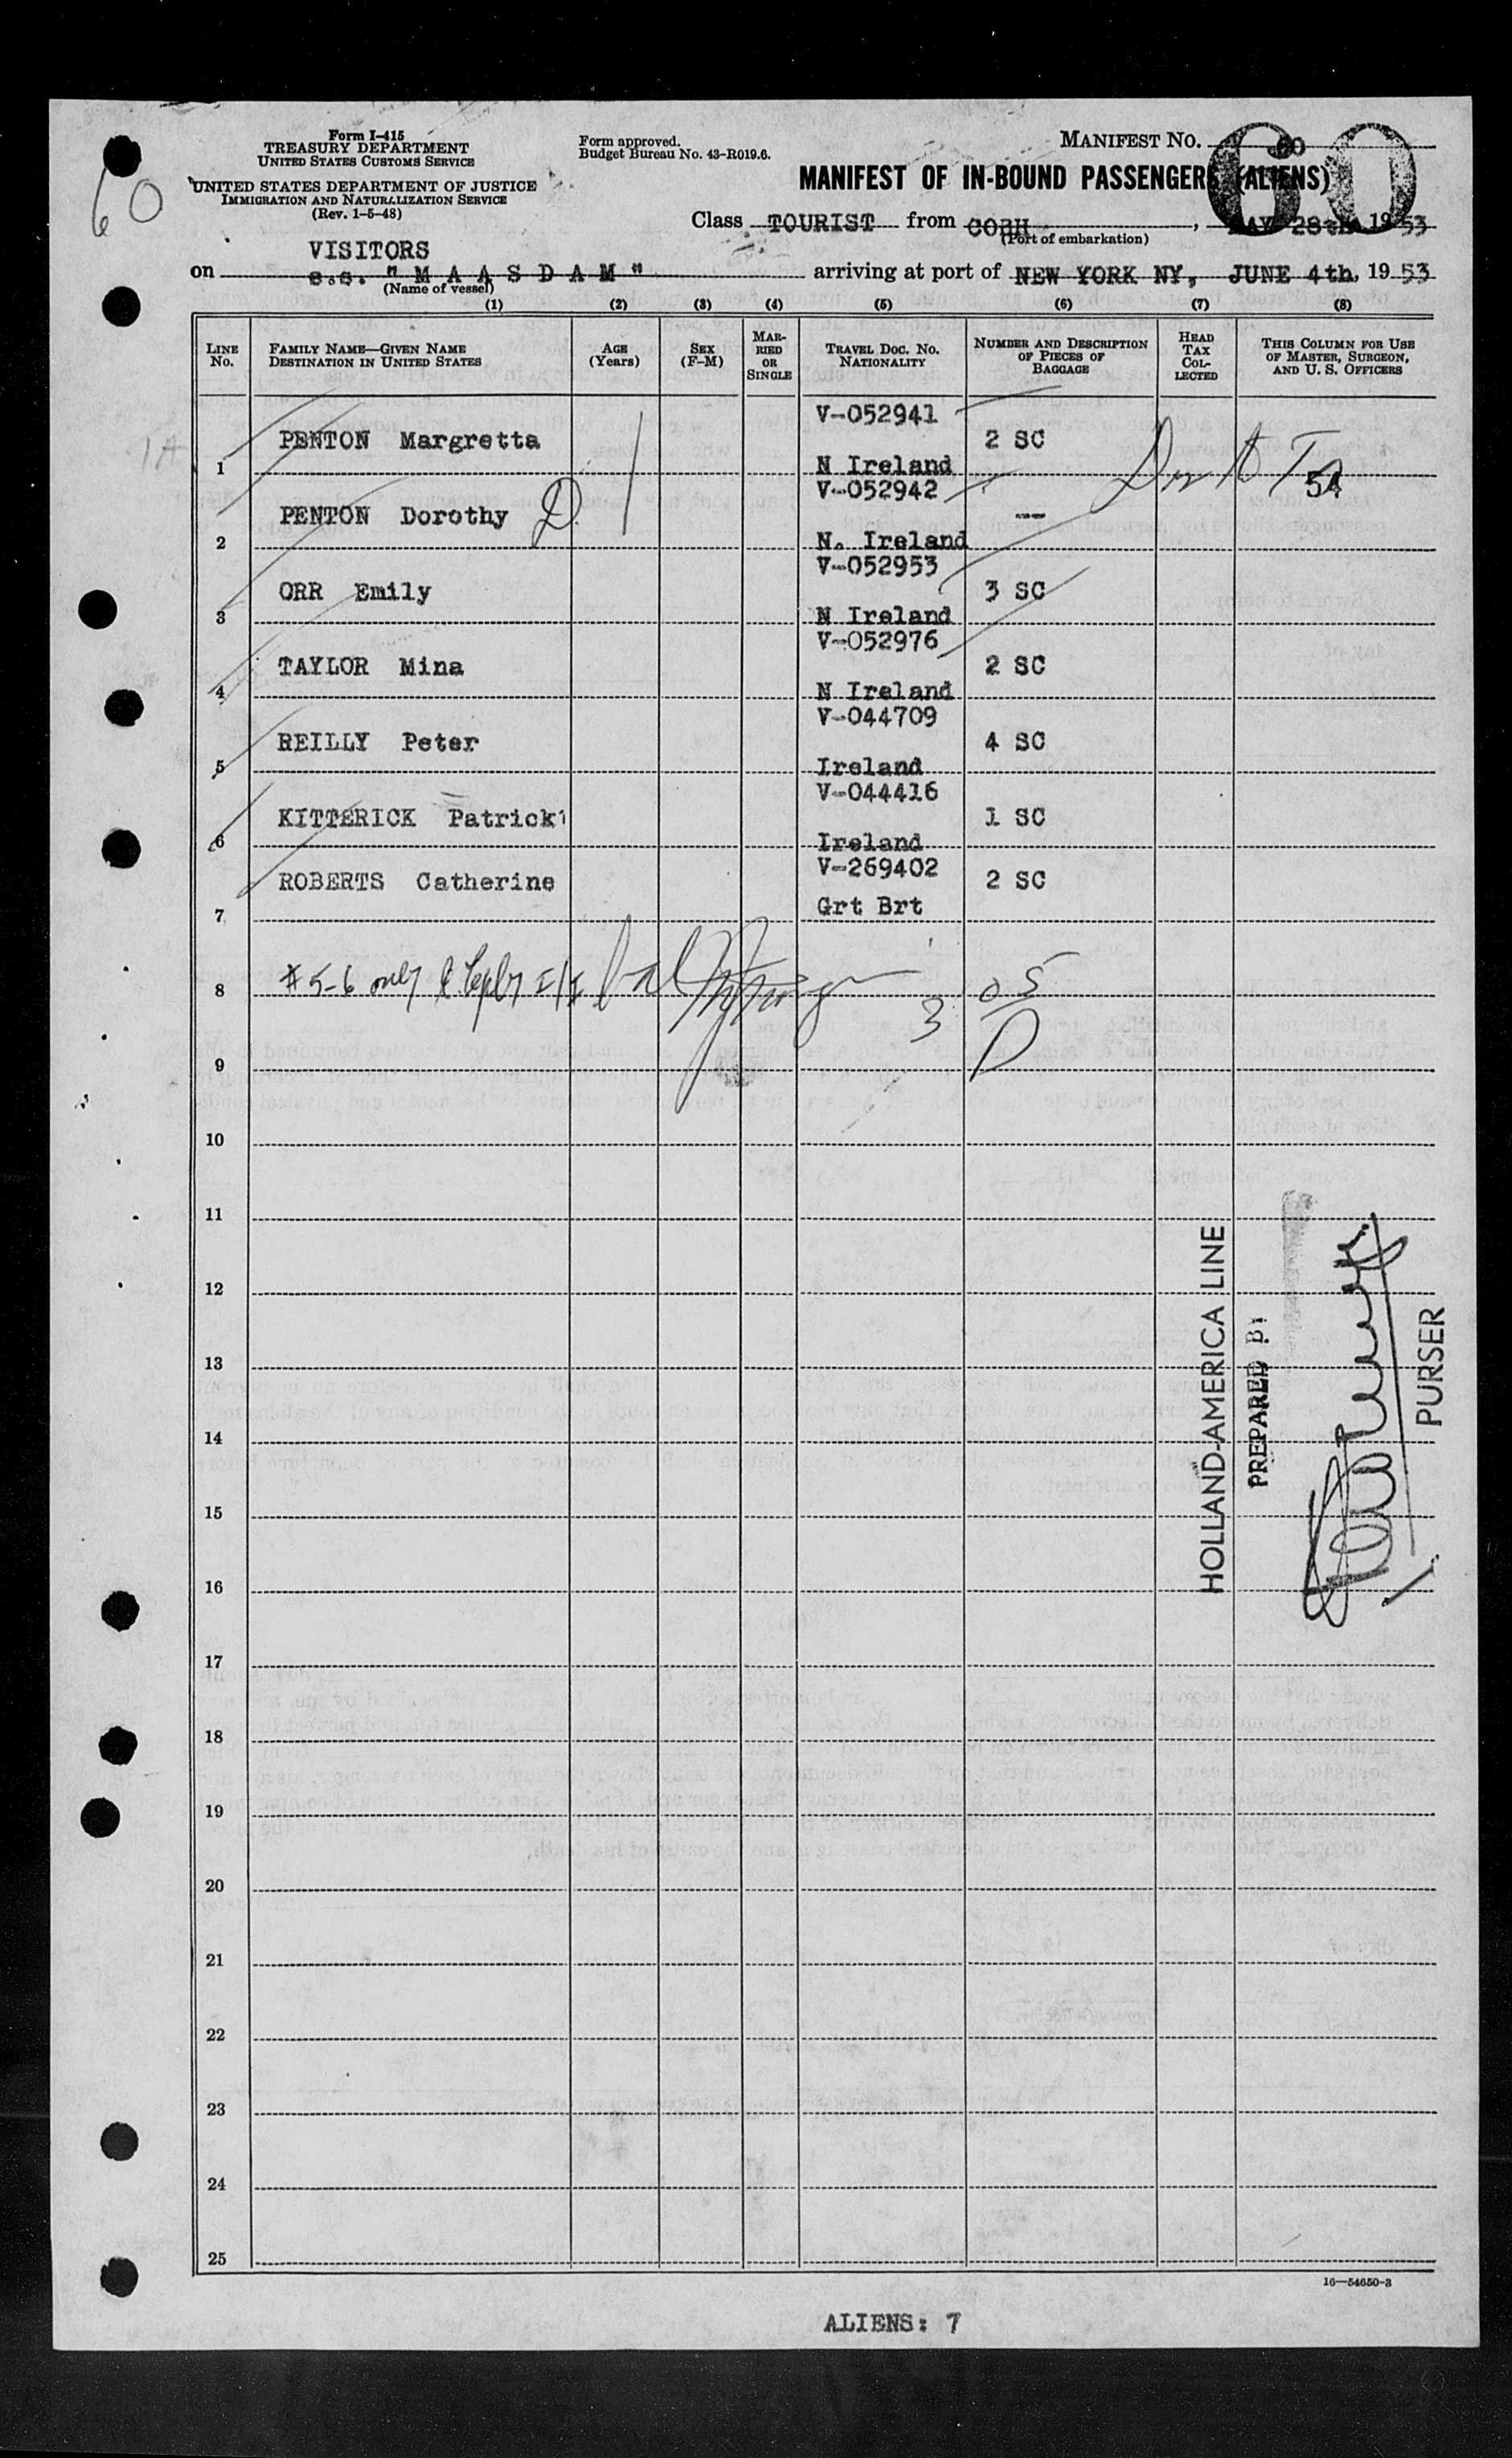 Form I-415
TREASURY DEPARTMENT
UNITED STATES CUSTOMS SERVICE
UNITED STATES DEPARTMENT OF JUSTICE
IMMIGRATION AND NATURALIZATION SERVICE
(Rev. 1-5-48)
Form approved.
Budget Bureau No. 43-R019.6.
MANIFEST NO. 60
60
60
MANIFEST OF IN-BOUND PASSENGERS (ALIENS)
Class TOURIST from COBH, MAY 28th 1953
(Port of embarkation)
VISITORS
on s.s. "MAASDAM" arriving at port of NEW YORK NY, JUNE 4th, 1953
(Name of vessel)
(1) (2) (3) (4) (5) (6) (7) (8)
LINE NO. FAMILY NAME—GIVEN NAME DESTINATION IN UNITED STATES AGE (Years) SEX (F-M) MARRIED OR SINGLE TRAVEL DOC. NO. NATIONALITY NUMBER AND DESCRIPTION OF PIECES OF BAGGAGE HEAD TAX COLLECTED THIS COLUMN FOR USE OF MASTER, SURGEON, AND U. S. OFFICERS
1A
1 PENTON Margretta V-052941 N Ireland 2 SC
54
2 PENTON Dorothy D V-052942 N. Ireland --
3 ORR Emily V-052953 N Ireland 3 SC
4 TAYLOR Mina V-052976 N Ireland 2 SC
5 REILLY Peter V-044709 Ireland 4 SC
6 KITTERICK Patrick V-044416 Ireland 1 SC
7 ROBERTS Catherine V-269402 Grt Brt 2 SC
8 #5-6 only
3 05
D
9
10
11
12
13
14
15
16
17
18
19
20
21
22
23
24
25
HOLLAND-AMERICA LINE
PREPARED BY
PURSER
16—54650-3
ALIENS: 7